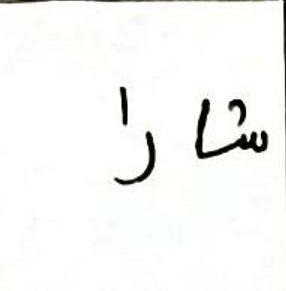 شارا